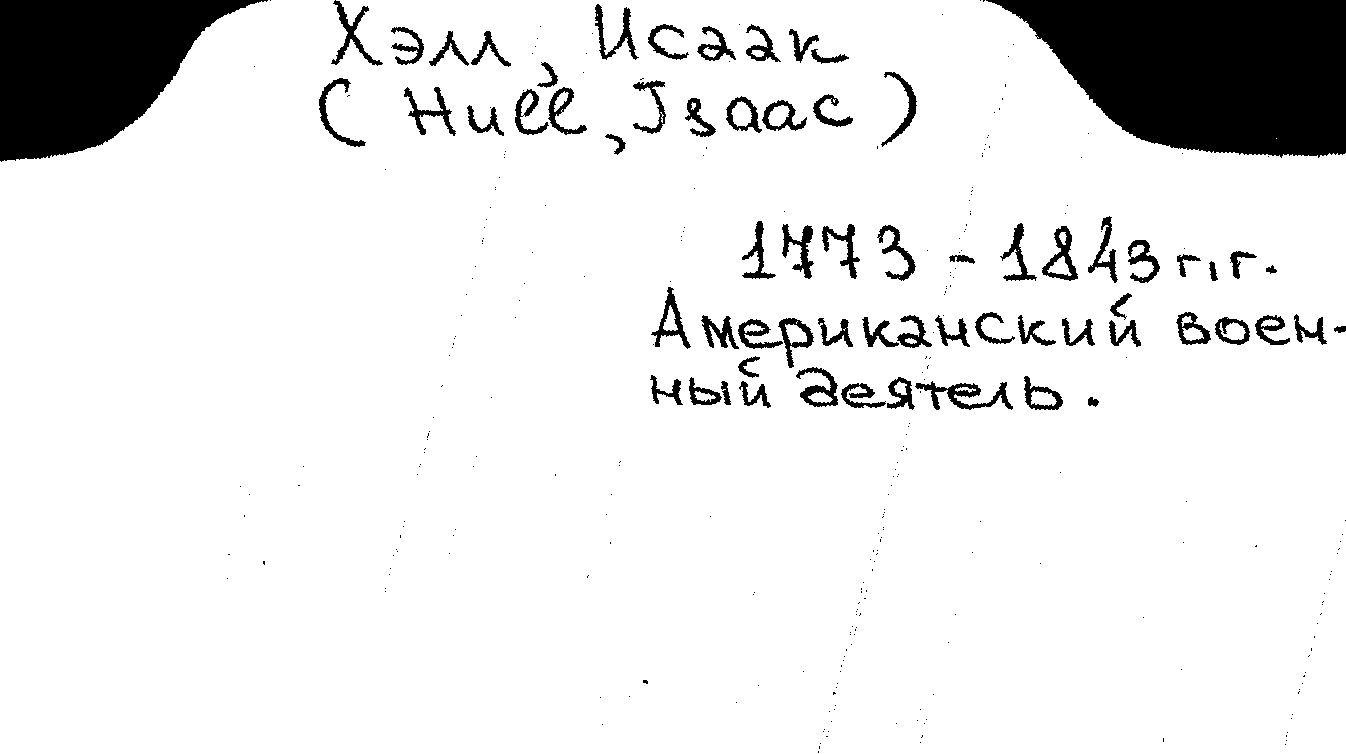 Хэлл, Исаак
(Hull, Isaac)
1773 - 1843 г.г.
Американский воен-
ный деятель.